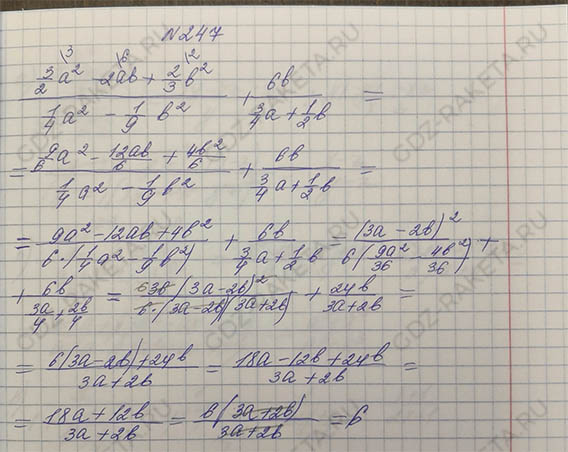 N247
\3 \6 \2
(3/2 a² - 2ab + 2/3 b²)/(1/4 a² - 1/9 b²) + 6b/(3/4 a + 1/2 b) =
= (9/6 a² - 12ab/6 + 4b²/6)/(1/4 a² - 1/9 b²) + 6b/(3/4 a + 1/2 b) =
= (9a² - 12ab + 4b²)/(6·(1/4 a² - 1/9 b²)) + 6b/(3/4 a + 1/2 b) = (3a - 2b)²/(6(9a²/36 - 4b²/36)) +
+ 6b/(3a/4 + 2b/4) = 636(3a - 2b)²/(6·(3a - 2b)(3a + 2b)) + 24b/(3a + 2b) =
= (6(3a - 2b) + 24b)/(3a + 2b) = (18a - 12b + 24b)/(3a + 2b) =
= (18a + 12b)/(3a + 2b) = 6(3a + 2b)/(3a + 2b) = 6
GDZ-RAKETA.RU